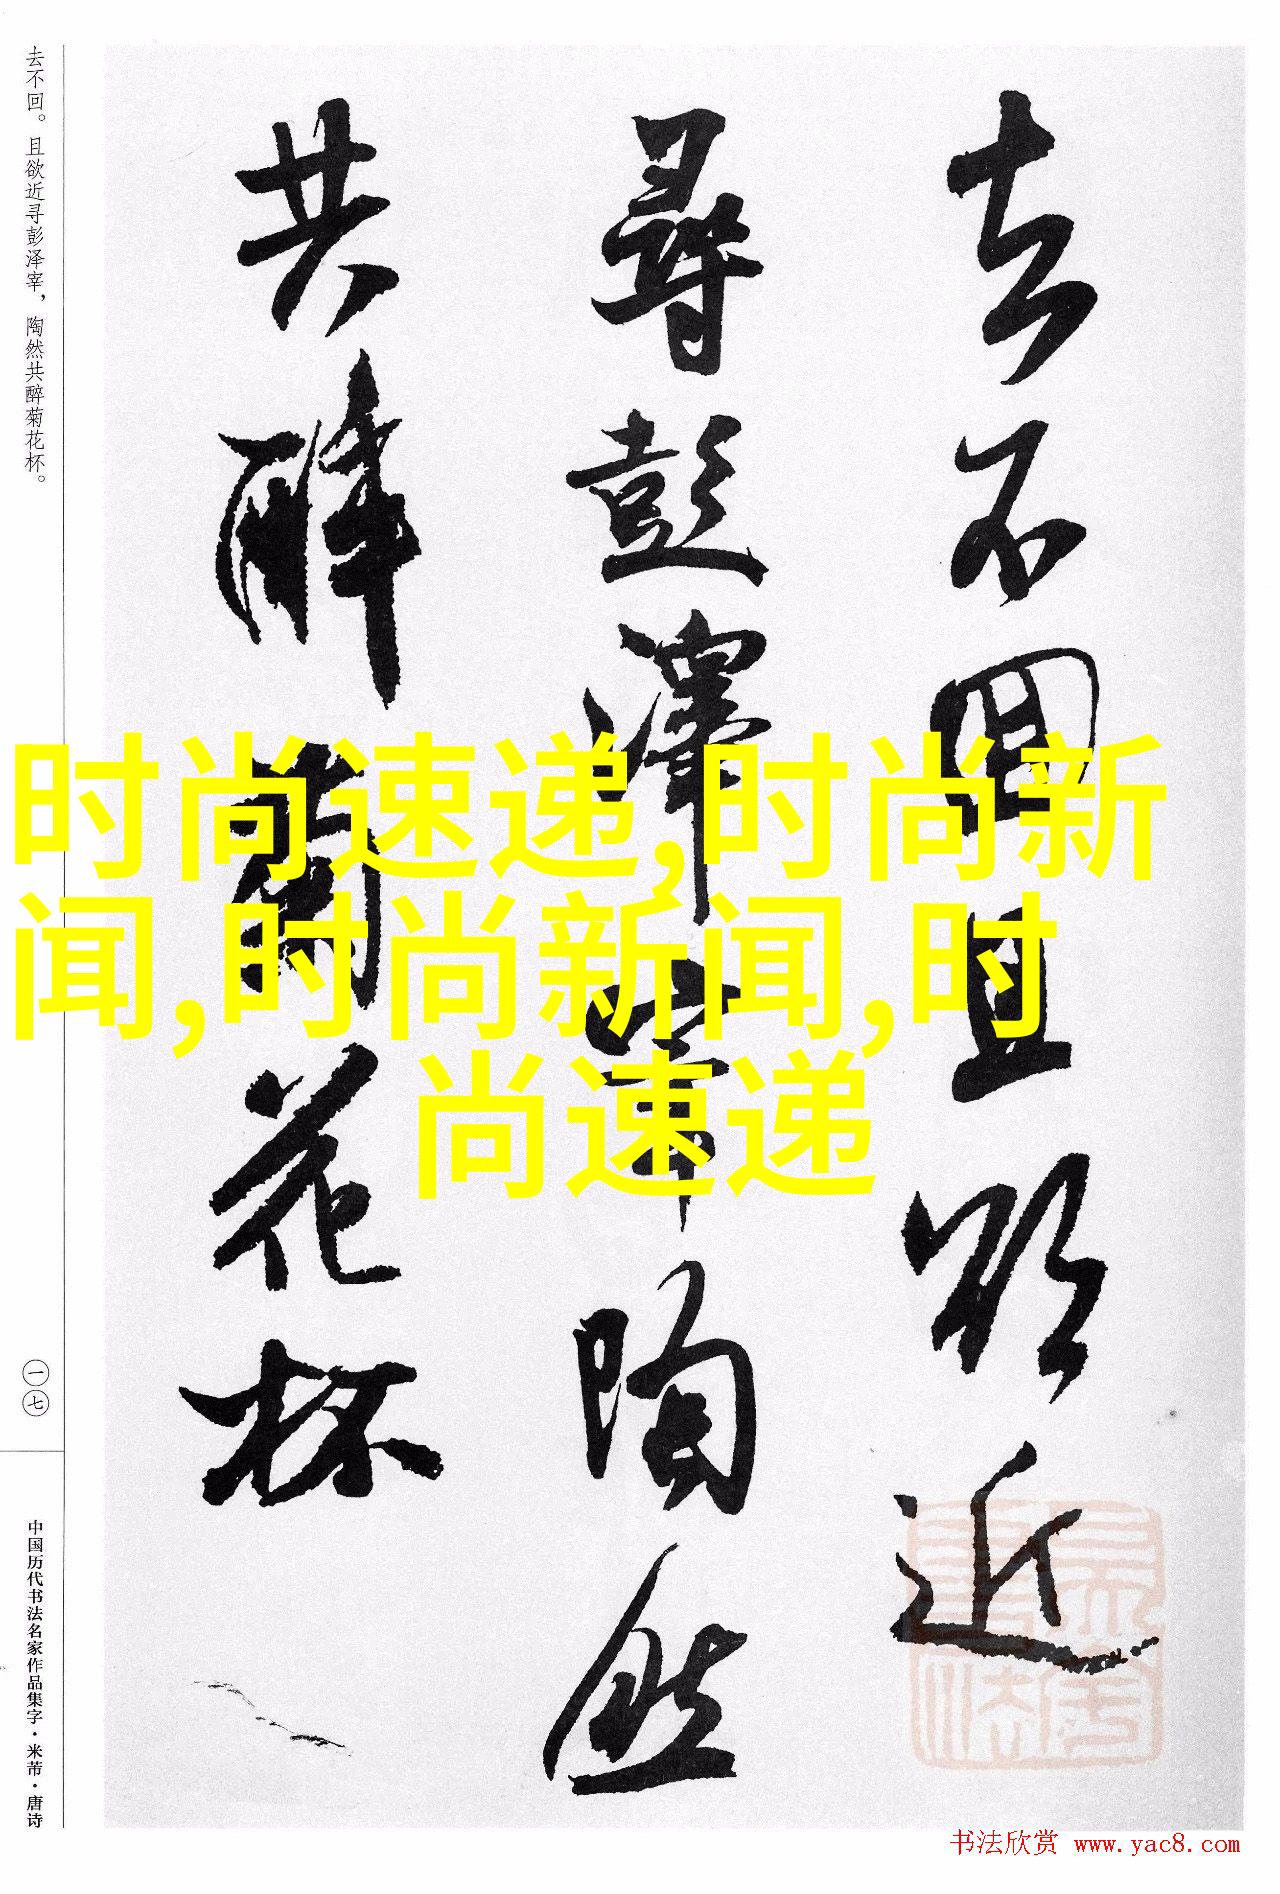 去不回且欲近
尋彭澤宰陶然
共醉菊花杯
时尚速递,时尚新
闻,时尚新闻,时
尚速递
去不回。且欲近寻彭泽宰，陶然共醉菊花杯。
一七
中国历代书法名家作品集字·米芾·唐诗
书法欣赏 www.yac8.com